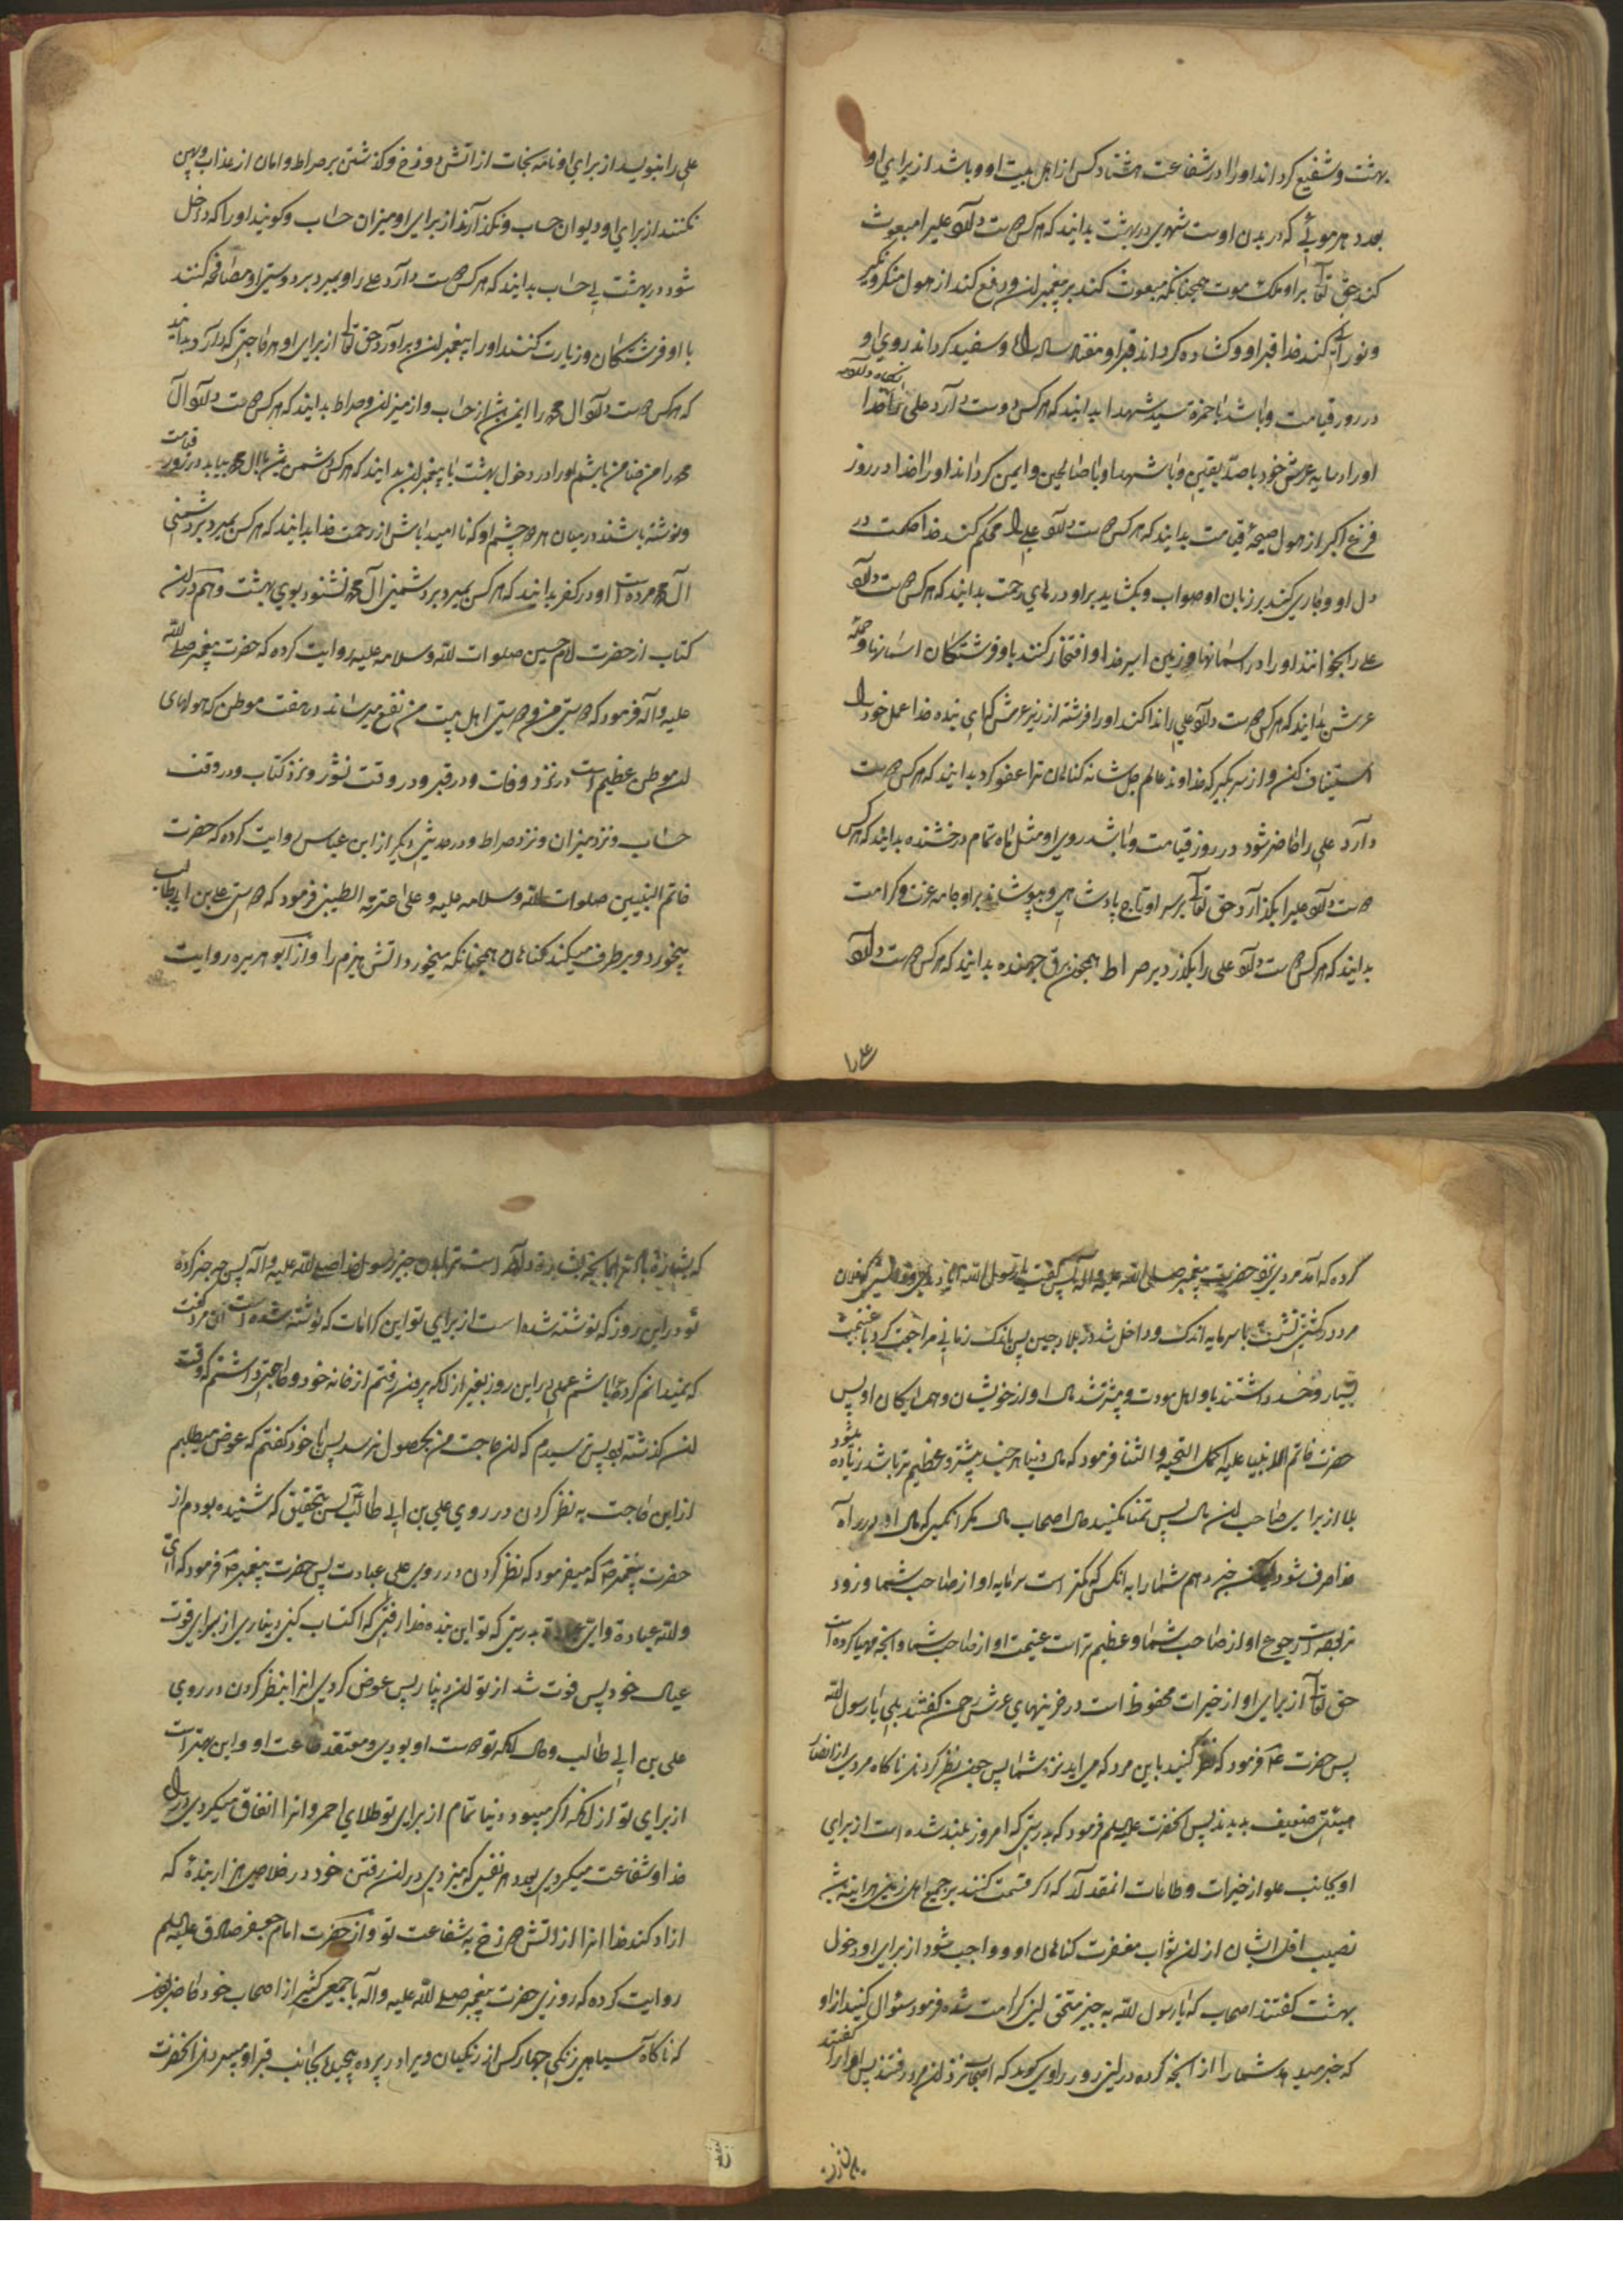 بهشت و شفیع کرداند او را در شفاعت هشتاد کس از اهل بیت او و باشد از برای او
بعدد هر موئی که در بدن اوست شهری در بهشت بدانید که هر کس دوست دارد علیرا مبعوث
کند حق تعا بر او ملک موت همچنانکه مبعوث کند بر پیغمبران و رفع کند از هول منکر و نکیر
و نورانی کند خدا قبر او و کشاده کرداند قبر او هفتاد ساله راه و سفید کرداند روی او
در روز قیامت و باشد با حمزه سید شهدا بدانید که هر کس دوست دارد علی را خدا
نکاه دارد
او را در سایه عرش خود با صدیقین و با شهدا و با صالحین و ایمن کرداند او را خدا در روز
فزع اکبر از هول صیحهٔ قیامت بدانید که هر کس دوست دارد علی را محکم کند خدا حکمت در
دل او و جاری کند بر زبان او صواب و بکشاید بر او درهای رحمت بدانید که هر کس دوست دارد
علی را بخوانند او را در اسمانها و زمین اسیر خدا و افتخار کنند باو فرشتکان اسمانها و حمله
عرش بدانید که هر کس دوست دارد علی را ندا کند او را فرشته از زیر عرش که ای بنده خدا عمل خود را
استیناف کن و از سر بکیر که خداوند عالم جل شانه کناهان ترا عفو کرد بدانید که هر کس دوست
دارد علی را حاضر شود در روز قیامت و باشد روی او مثل ماه تمام درخشنده بدانید که هر کس
دوست دارد علیرا بکذارد حق تعا بر سر او تاج پادشاهی و بپوشاند بر او جامه عزت و کرامت
بدانید که هر کس دوست دارد علی را بکذرد بر صراط همچون برق جهنده بدانید که هر کس دوست دارد
علی را
علی را بنویسد از برای او نامه نجات از اتش دوزخ و کذشتن بر صراط و امان از عذاب و پهن
نکنند از برای او دیوان حساب و نکذارند از برای او میزان حساب و کویند او را که داخل
شو در بهشت بی حساب بدانید که هر کس دوست دارد علی را و بمیرد بر دوستی او مصافحه کنند
با او فرشتکان و زیارت کنند او را پیغمبران و برآورد حق تعا از برای او هر حاجتی که دارد بدانید
که هر کس دوست دارد ال محمد را ایمن باشد از حساب و از میزان و صراط بدانید که هر کس دوست دارد آل
محمد را من ضامن باشم او را در دخول بهشت با پیغمبران بدانید که هر کس دشمن باشد با ال محمد بیاید در روز قیامت
و نوشته باشند در میان هر دو چشم او که نا امید باش از رحمت خدا بدانید که هر کس بمیرد بر دشمنی
آل محمد مرده است او در کفر بدانید که هر کس بمیرد بر دشمنی آل محمد نشنود بوی بهشت و هم در ان
کتاب از حضرت امام حسین صلوات الله و سلامه علیه روایت کرده که حضرت پیغمبر صلی الله
علیه و اله فرمود که دوستی من و دوستی اهل بیت من نفع میرساند در هفت موطن که هولهای
ان موطن عظیم است در نزد وفات و در قبر و در وقت نشور و نزد کتاب و در وقت
حساب و نزد میزان و نزد صراط و در حدیثی دیکر از ابن عباس روایت کرده که حضرت
خاتم النبیین صلوات الله و سلامه علیه و علی عترته الطیبین فرمود که دوستی علی بن ابی طالب
میخورد و برطرف میکند کناهان همچنانکه میخورد اتش هیزم را و از ابو هریره روایت
کرده که آمد مردی نزد حضرت پیغمبر صلی الله علیه و اله پس کفت یا رسول الله که فلان
مرد در کشتی نشست با سرمایه اندک و داخل شد در بلاد چین پس باندک زمانی مراجعت کرد با غنیمت
بسیار و حسد داشتند باو اهل مودت و بیشتر شد مال او از خویشان و همسایکان او پس
حضرت خاتم الانبیا علیه اکمل التحیه و الثنا فرمود که مال دنیا هر چند بیشتر و عظیم تر باشد زیاده میشود
بلا از برای صاحب ان مال پس تمنا نکنید حال اصحاب مال مکر انکسی که مال او در راه
خدا صرف شود لیکن خبر دهم شما را به انکس که کمتر است سرمایه او از صاحب شما و زود
تر بوده است رجوع او از صاحب شما و عظیم تر است غنیمت او از صاحب شما و انچه مهیا کرده است
حق تعا از برای او از خیرات محفوظ است در خزینهای عرش رحمن کفتند بلی یا رسول الله
پس حضرت فرمود که نظر کنید باین مرد که می اید نزد شما پس چون نظر کردند ناکاه مردی از انصار
ضعیف بدیدند پس انحضرت علیه السلم فرمود که بدرستی که امروز بلند شده است از برای
او بجانب علو از خیرات و طاعات انمقدار که اکر قسمت کنند بر جمیع اهل زمین هر اینه باشد
نصیب اقل ایشان از ان ثواب مغفرت کناهان او و واجب شود از برای او دخول
بهشت کفتند اصحاب که یا رسول الله به چیز مستحق این کرامت شده فرمود سئوال کنید از او
که خبر میدهد شما را از انچه کرده در این روز راوی کوید که اصحاب نزد ان مرد رفتند پس او را کفتند
که بشارت باد ترا بانچه بشارت داده است ترا بدان چیز رسول خدا صلی الله علیه و اله پس چه چیز کرده
تو در این روز که نوشته شده است از برای تو این کرامات که نوشته شده است ان مرد کفت
که نمیدانم کرده باشم عملی در این روز بغیر از انکه بیرون رفتم از خانه خود و حاجتی داشتم که وقت
ان کذشته بود پس ترسیدم که ان حاجت من بحصول نرسد پس با خود کفتم که عوض میطلبم
از این حاجت به نظر کردن در روی علی بن ابی طالب پس بتحقیق که شنیده بودم از
حضرت پیغمبر که میفرمود که نظر کردن در روی علی عبادت پس حضرت پیغمبر فرمود که ای
والله عبادة و ای عبادة بدرستی که تو ای بنده خدا رفتی که اکتساب کنی دیناری از برای قوت
عیال خود پس فوت شد از تو ان دینار پس عوض کردی انرا بنظر کردن در روی
علی بن ابی طالب و حال انکه تو دوست او بودی و معتقد طاعت او و این بهتر است
از برای تو از انکه اکر میبود دنیا تمام از برای تو طلای احمر و انرا انفاق میکردی در راه
خدا و شفاعت میکردی بعدد هر نفسی که میزدی در ان رفتن خود در خلاصی هزار بنده که
ازاد کند خدا انرا از اتش دوزخ به شفاعت تو و از حضرت امام جعفر صادق علیه السلم
روایت کرده که روزی حضرت پیغمبر صلی الله علیه و آله با جمعی کثیر از اصحاب خود حاضر بودند
که ناکاه سیاهی زنکی چهار کس از زنکیان ویرا در پرده پیچیده بجانب قبر او میبردند انحضرت